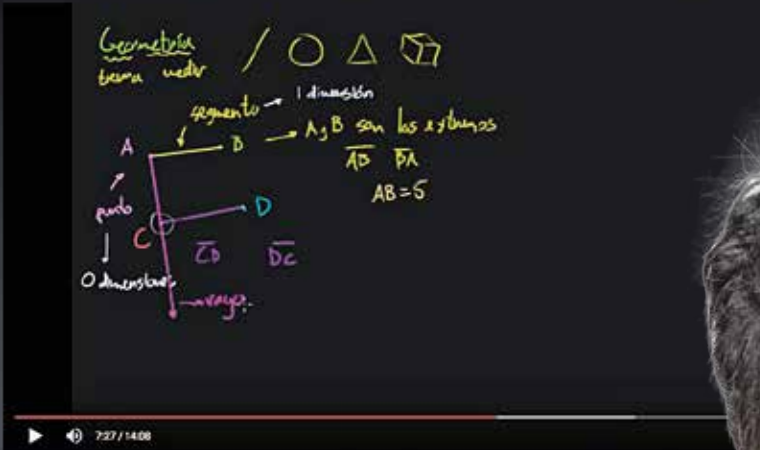 Geometría
tierra medir
segmento → 1 dimensión
A
B → A y B son los extremos
AB BA
AB = 5
punto
D
C
CD DC
0 dimensiones
→ rayo
7:27 / 14:08